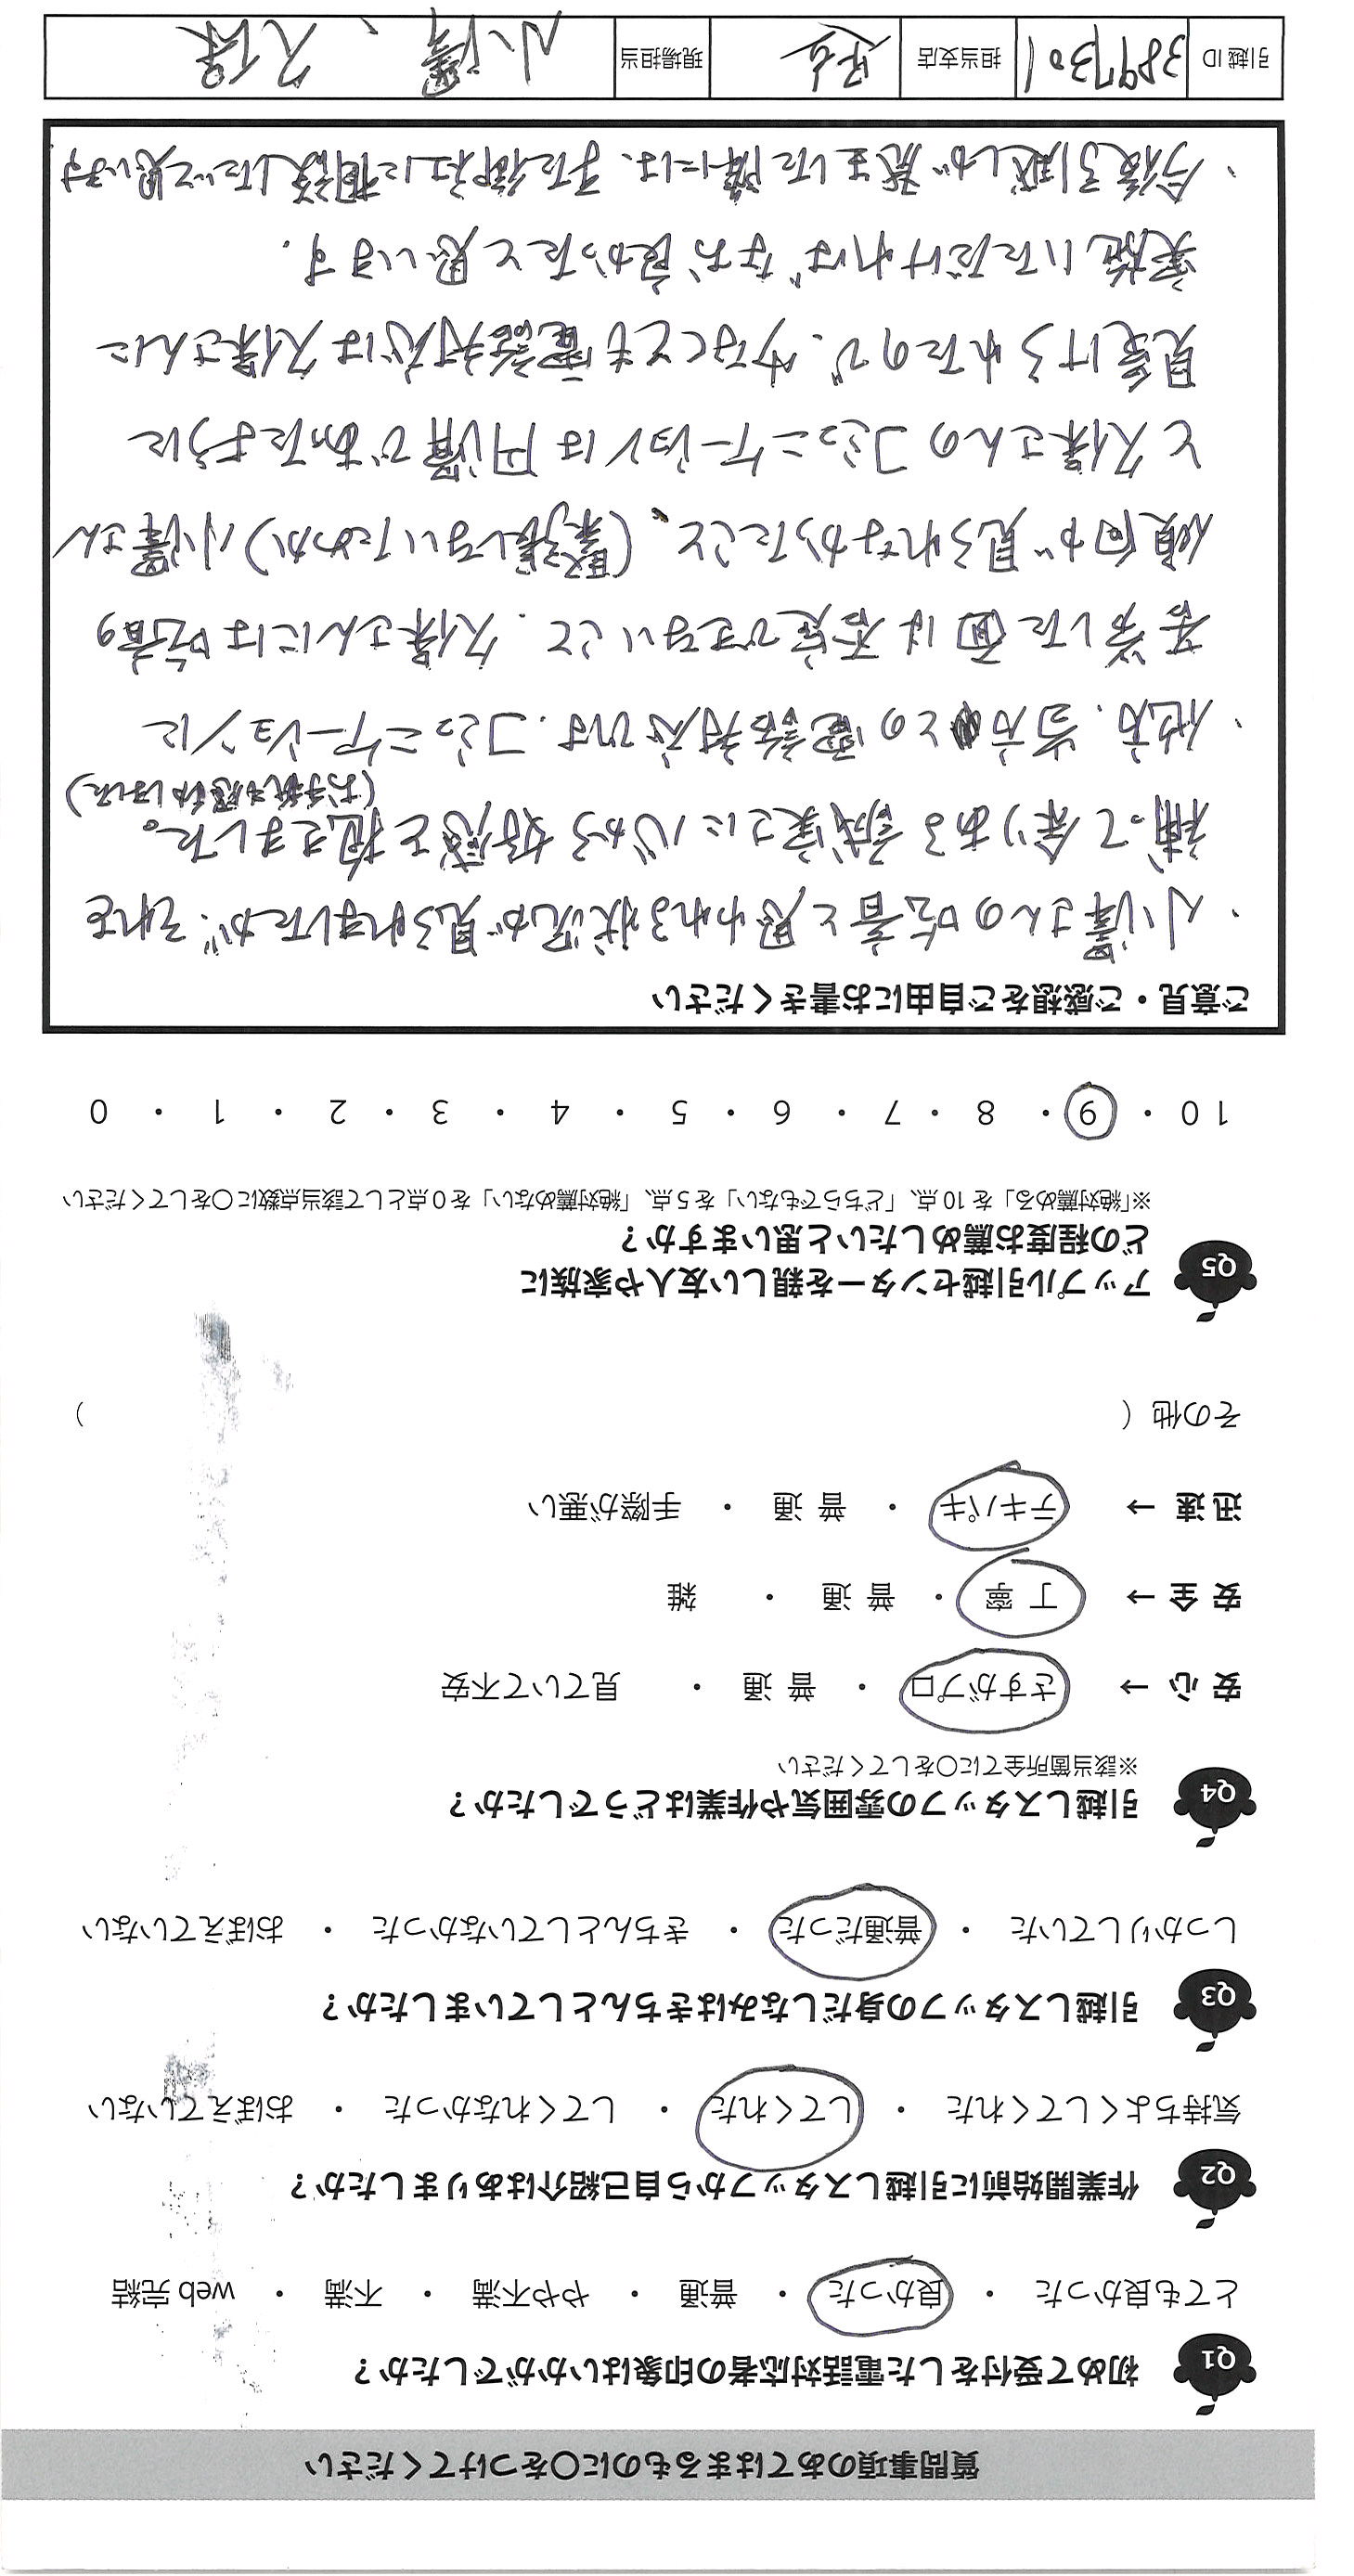 質問事項のあてはまるものに〇をつけてください
Q1 初めて受付をした電話対応者の印象はいかがでしたか?
とても良かった ・ 良かった ・ 普通 ・ やや不満 ・ 不満 ・ web 完結
Q2 作業開始前に引越しスタッフから自己紹介はありましたか?
気持ちよくしてくれた ・ してくれた ・ してくれなかった ・ おぼえていない
Q3 引越しスタッフの身だしなみはきちんとしていましたか?
しっかりしていた ・ 普通だった ・ きちんとしていなかった ・ おぼえていない
Q4 引越しスタッフの雰囲気や作業はどうでしたか?
※該当箇所全てに〇をしてください
安心 → さすがプロ ・ 普通 ・ 見ていて不安
安全 → 丁寧 ・ 普通 ・ 雑
迅速 → テキパキ ・ 普通 ・ 手際が悪い
その他 ( )
Q5 アップル引越センターを親しい友人や家族に
どの程度お薦めしたいと思いますか?
※「絶対薦める」を 10 点、「どちらでもない」を 5 点、「絶対薦めない」を 0 点として該当点数に〇をしてください
10 ・ 9 ・ 8 ・ 7 ・ 6 ・ 5 ・ 4 ・ 3 ・ 2 ・ 1 ・ 0
ご意見・ご感想をご自由にお書きください
・小澤さんの吃音と思われる状況が見られましたが、それを
補って余りある誠実さに心から好感と抱きました。
(お手紙も感動しました)
・他方、当方との電話対応です。コミュニケーションに
苦労した面は否定できないこと、久保さんには吃音の
傾向が見られなかったこと、(緊張しないためか)小澤さん
と久保さんのコミュニケーションは円滑であったように
見受けられたので、少なくとも電話対応は久保さんに
実施いただければなお良かったと思います。
・今後引越しが発生した際には、また御社に相談したいと思います
引越 ID 3897301 担当支店 現場担当 小澤、久保